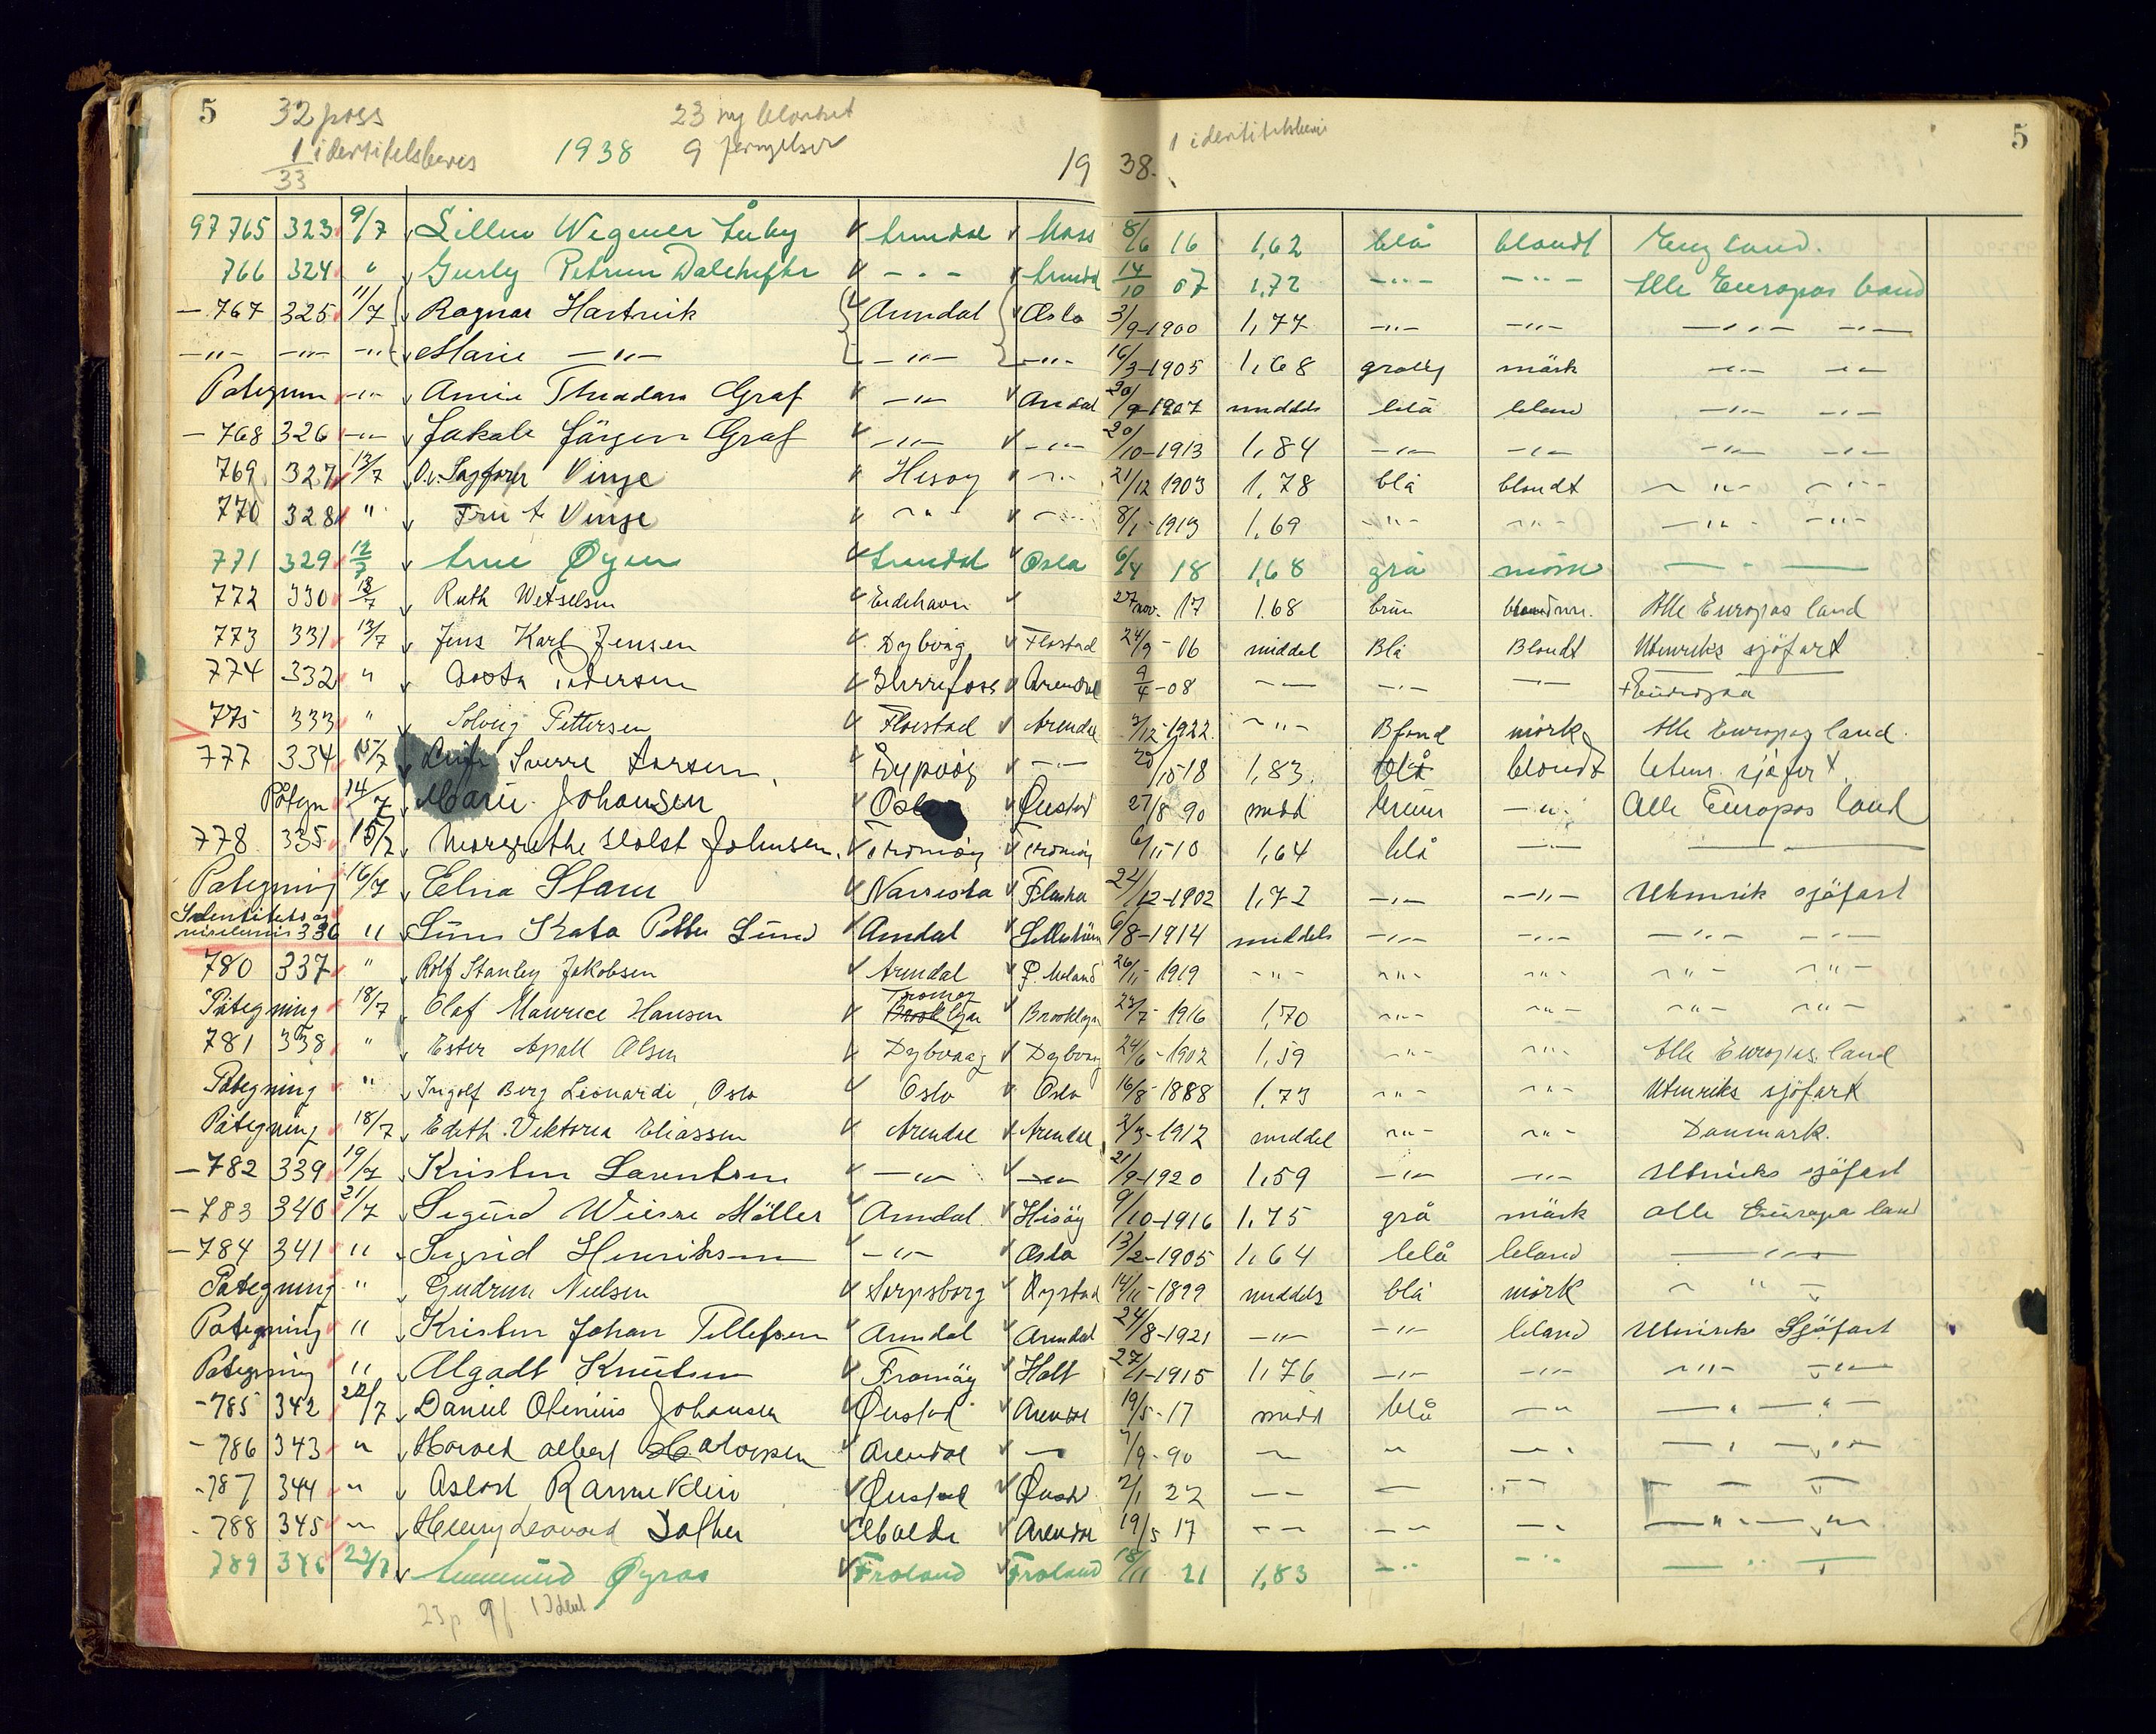 5 32 pass 23 ny blankett 1 identitetsbevis 5
1 identitetsbevis 1938 9 fornyelser
33 19 38.
97 765 323 9/7 Lillen Wegener Arendal Moss 8/6 16 1,62 blå blondt England.
766 324 " Gurly Petrine - " - Arendal 14/10 07 1,72 -"- -"- Alle Europas land
-767 325 11/7 Ragnar Hartvik Arendal Oslo 3/9-1900 1,77 -"- -"- -"- -"-
-"- -"- -"- Marie -"- -"- -"- 16/3-1905 1,68 mörk -"- -"-
Pategnin -"- Graf -"- Arendal 20/9-1907 middels blå blond -"- -"-
-768 326 -"- Jakob Jörgen Graf -"- -"- 20/10-1913 1,84 -"- -"- -"- -"-
769 327 13/7 Vinje Hisøy -"- 21/12 1903 1,78 blå blondt -"- -"-
770 328 " Fru Vinje -"- -"- 8/1-1913 1,69 -"- -"- -"- -"-
771 329 12/7 Arne Øyen Arendal Oslo 6/4 18 1,68 grå mörk - " -
772 330 13/7 Ruth Eydehavn 27 nov. 17 1.68 brun Alle Europas land
773 331 13/7 Jens Karl Jensen Dybvåg Flostad 24/9-06 middel Blå Blondt Utenriks sjöfart
774 332 " Pedersen Arendal 9/4-08 -"- -"- -"- Europa
775 333 " Solveig Pettersen Flosstad Arendal 3/12-1922. -"- mörk Alle Europas land.
777 334 15/7 Sverre Larsen. Dypvåg -"- 20/10-18 1,83. blå blondt Utenr. sjöfart.
Påtegn 14/7 Marie Johansen Oslo Øiestad 27/8 90 midd bruun -"- Alle Europas land
778 335 15/7 Margrethe Holst Johnsen. Tromöy Tromöy 6/11-10 1,64 blå -"-
Pategning 16/7 Elna Flosta 24/12-1902 1,72 -"- -"- Utenrik sjöfart
336 " Petter Lund Arendal Lillestrøm 6/8-1914 middels -"- -"- -"- -"-
780 337 " Rolf Stanley Jakobsen Arendal 26/11-1919 -"- -"- -"- -"- -"-
Påtegning 18/7 Olaf Maurice Hansen Tromøy Brooklyn Brooklyn 23/7-1916 1,70 -"- -"- -"- -"-
781 338 " Ester Olsen Dybvaag Dybvåg 24/6-1902 1,59 -"- -"- Alle Europas land
Påtegning " Ingolf Berg Leonardi, Oslo Oslo Oslo 16/8-1888 1,73 -"- -"- Utenriks sjöfart
Påtegning 18/7 Edith Viktoria Eliassen Arendal Arendal 3/3-1912 middel -"- -"- Danmark.
-782 339 19/7 Kristen Larentsen -"- -"- 21/9-1920 1,59 -"- -"- Utenriks sjöfart
-783 340 21/7 Sigurd Möller Arendal Hisöy 9/10-1916 1,75 grå mörk alle Europa land
-784 341 " Sigrid Henriksen -"- Oslo 13/2-1905 1,64 blå blond -"-
Påtegning " Gudrun Nielsen Sarpsborg Øyestad 14/11-1899 middels blå mörk - " -
Pategning " Kristen Johan Tellefsen Arendal Arendal 24/8-1921 -"- -"- blond Utenriks Sjöfart
Pategning " Algodt Knutsen Tromöy Holt 27/1-1915 1,76 -"- -"- -"- -"-
-785 342 22/7 Daniel Olenius Johansen Øiestad Arendal 19/5-17 midd blå -"- -"-
-786 343 " Harald Albert Halvorsen Arendal - 7/9-90 - " -"-
-787 344 " Aslost Ramneklev Øiestad Øiest 2/1 22 -- - --
-788 345 " Henry Leonard Arendal 19/5 17 -- -- -"-
789 346 23/7 Øyras Froland Froland 18/11 21 1,83 -"- -"- - " -
23 p 9 f. 1 Ident